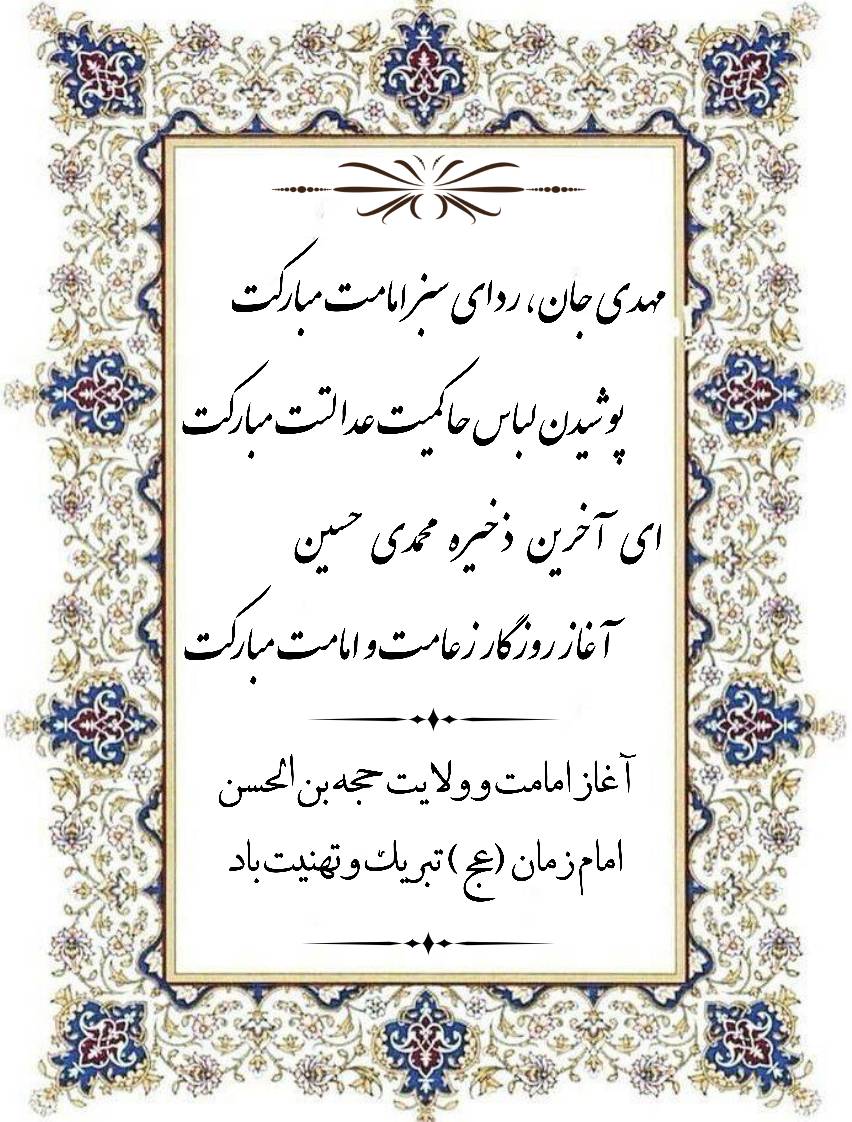 مهدی جان، ردای سبز امامت مبارکت
پوشیدن لباس حاکمیت عدالتت مبارکت
ای آخرین ذخیره محمدی حسین
آغاز روزگار زعامت و امامت مبارکت
آغاز امامت و ولایت حجه بن الحسن
امام زمان (عج) تبریک و تهنیت باد